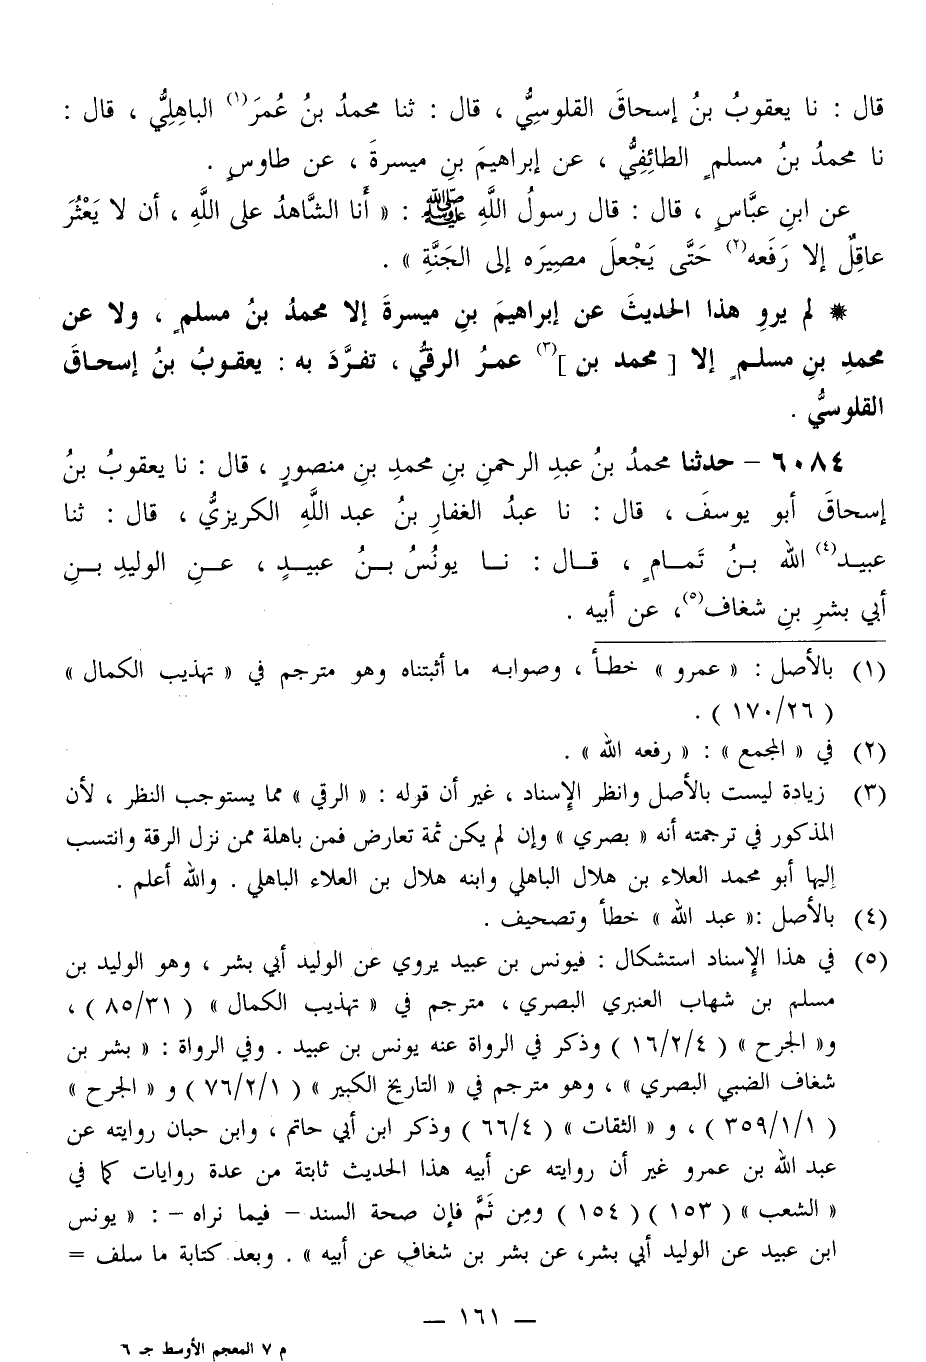 قال : نا يعقوبُ بنُ إسحاقَ القلوسِيُّ ، قال : ثنا محمدُ بنُ عُمَرَ(١) الباهِلِيُّ ، قال :
نا محمدُ بنُ مسلمٍ الطائِفِيُّ ، عن إبراهيمَ بنِ ميسرةَ ، عن طاوسٍ .
عن ابنِ عبَّاسٍ ، قال : قال رسولُ اللَّهِ ﷺ : « أَنا الشَّاهدُ على اللَّهِ ، أن لا يَعْثُرَ
عاقِلٌ إلا رَفَعه(٢) حَتَّى يَجْعلَ مصيرَه إلى الجَنَّةِ » .
* لم يروِ هذا الحديثَ عن إبراهيمَ بنِ ميسرةَ إلا محمدُ بنُ مسلمٍ ، ولا عن
محمدِ بنِ مسلمٍ إلا [ محمد بن ](٣) عمرُ الرقيُّ ، تفرَّدَ به : يعقوبُ بنُ إسحاقَ
القلوسيُّ .
٦٠٨٤ – حدثنا محمدُ بنُ عبدِ الرحمنِ بنِ محمدِ بنِ منصورٍ ، قال : نا يعقوبُ بنُ
إسحاقَ أبو يوسفَ ، قال : نا عبدُ الغفارِ بنُ عبد اللَّهِ الكريزيُّ ، قال : ثنا
عبيد(٤) الله بنُ تَمامٍ ، قال : نا يونُسُ بنُ عبيدٍ ، عنِ الوليدِ بنِ
أبي بشرِ بنِ شغاف(٥)، عن أبيه .
(١) بالأصل : « عمرو » خطأ ، وصوابه ما أثبتناه وهو مترجم في « تهذيب الكمال »
( ١٧٠/٢٦ ) .
(٢) في « المجمع » : « رفعه الله » .
(٣) زيادة ليست بالأصل وانظر الإسناد ، غير أن قوله : « الرقي » مما يستوجب النظر ، لأن
المذكور في ترجمته أنه « بصري » وإن لم يكن ثمة تعارض فمن باهلة ممن نزل الرقة وانتسب
إليها أبو محمد العلاء بن هلال الباهلي وابنه هلال بن العلاء الباهلي . والله أعلم .
(٤) بالأصل :« عبد الله » خطأ وتصحيف .
(٥) في هذا الإسناد استشكال : فيونس بن عبيد يروي عن الوليد أبي بشر ، وهو الوليد بن
مسلم بن شهاب العنبري البصري ، مترجم في « تهذيب الكمال » ( ٨٥/٣١ ) ،
و« الجرح » ( ١٦/٢/٤ ) وذكر في الرواة عنه يونس بن عبيد . وفي الرواة : « بشر بن
شغاف الضبي البصري » ، وهو مترجم في « التاريخ الكبير » ( ٧٦/٢/١ ) و « الجرح »
( ٣٥٩/١/١ ) ، و « الثقات » ( ٦٦/٤ ) وذكر ابن أبي حاتم ، وابن حبان روايته عن
عبد الله بن عمرو غير أن روايته عن أبيه هذا الحديث ثابتة من عدة روايات كما في
« الشعب » ( ١٥٣ ) ( ١٥٤ ) ومِن ثَمَّ فإن صحة السند – فيما نراه – : « يونس
ابن عبيد عن الوليد أبي بشر، عن بشر بن شغاف عن أبيه » . وبعد كتابة ما سلف =
— ١٦١ —
م ٧ المعجم الأوسط جـ ٦